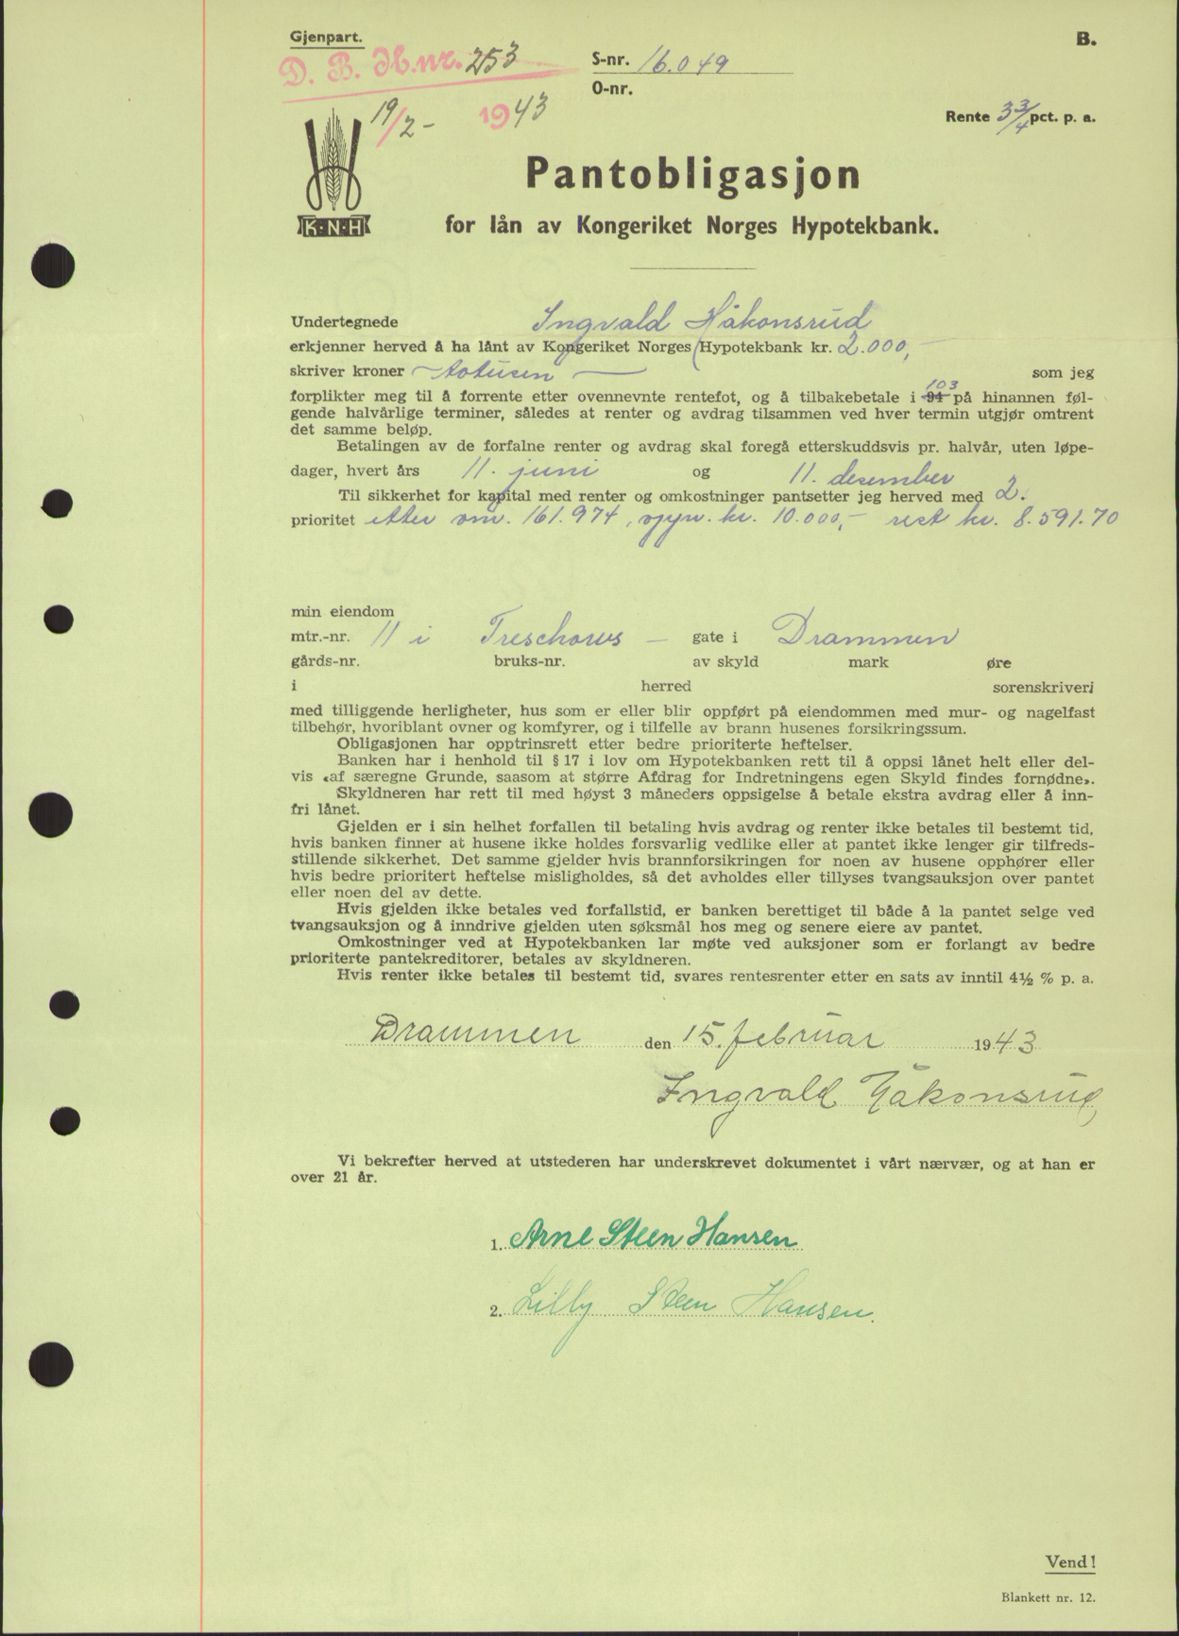 Gjenpart.
B.
D. B. H.nr. 253
S-nr. 16.049
O-nr.
19/2- 1943
Rente 3 3/4 pct. p. a.
K·N·H
Pantobligasjon
for lån av Kongeriket Norges Hypotekbank.
Undertegnede Ingvald Håkonsrud
erkjenner herved å ha lånt av Kongeriket Norges Hypotekbank kr. 2.000,-
skriver kroner - totusen - som jeg
forplikter meg til å forrente etter ovennevnte rentefot, og å tilbakebetale i 94 103 på hinannen føl-
gende halvårlige terminer, således at renter og avdrag tilsammen ved hver termin utgjør omtrent
det samme beløp.
Betalingen av de forfalne renter og avdrag skal foregå etterskuddsvis pr. halvår, uten løpe-
dager, hvert års 11. juni og 11. desember
Til sikkerhet for kapital med renter og omkostninger pantsetter jeg herved med 2.
prioritet etter 161.974, kr. 10.000,- rest kr. 8.591.70
min eiendom
mtr.-nr. 11 i Treschows - gate i Drammen
gårds-nr. bruks-nr. av skyld mark øre
i herred sorenskriveri
med tilliggende herligheter, hus som er eller blir oppført på eiendommen med mur- og nagelfast
tilbehør, hvoriblant ovner og komfyrer, og i tilfelle av brann husenes forsikringssum.
Obligasjonen har opptrinsrett etter bedre prioriterte heftelser.
Banken har i henhold til § 17 i lov om Hypotekbanken rett til å oppsi lånet helt eller del-
vis «af særegne Grunde, saasom at større Afdrag for Indretningens egen Skyld findes fornødne».
Skyldneren har rett til med høyst 3 måneders oppsigelse å betale ekstra avdrag eller å inn-
fri lånet.
Gjelden er i sin helhet forfallen til betaling hvis avdrag og renter ikke betales til bestemt tid,
hvis banken finner at husene ikke holdes forsvarlig vedlike eller at pantet ikke lenger gir tilfreds-
stillende sikkerhet. Det samme gjelder hvis brannforsikringen for noen av husene opphører eller
hvis bedre prioritert heftelse misligholdes, så det avholdes eller tillyses tvangsauksjon over pantet
eller noen del av dette.
Hvis gjelden ikke betales ved forfallstid, er banken berettiget til både å la pantet selge ved
tvangsauksjon og å inndrive gjelden uten søksmål hos meg og senere eiere av pantet.
Omkostninger ved at Hypotekbanken lar møte ved auksjoner som er forlangt av bedre
prioriterte pantekreditorer, betales av skyldneren.
Hvis renter ikke betales til bestemt tid, svares rentesrenter etter en sats av inntil 4½ % p. a.
Drammen den 15. februar 1943
Ingvald Håkonsrud
Vi bekrefter herved at utstederen har underskrevet dokumentet i vårt nærvær, og at han er
over 21 år.
1. Arne Steen Hansen
2. Lilly Steen Hansen.
Vend!
Blankett nr. 12.